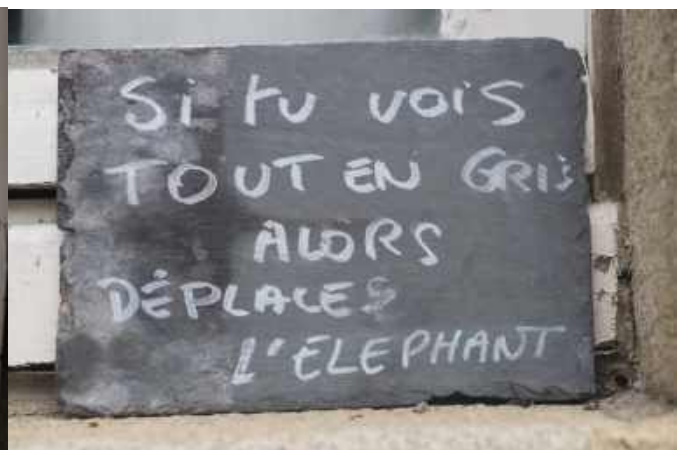 Si tu vois
TOUT EN GRIS
ALORS
DÉPLACES
L'ELEPHANT